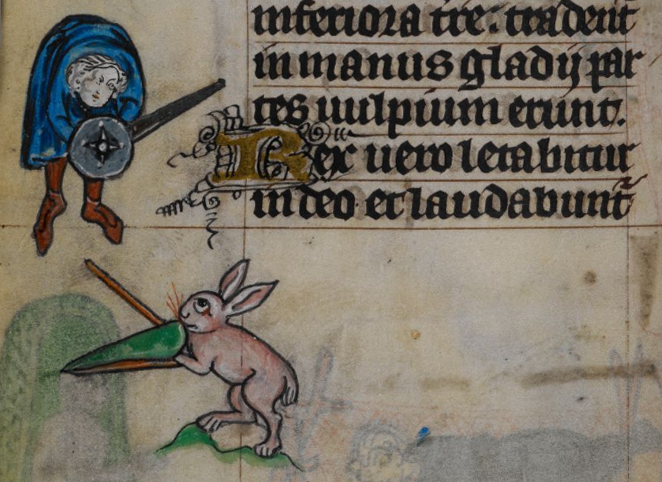 inferiora tre. tradent̄
in manus gladij par
tes uulpium erunt.
Rex uero letabitur
in deo et laudabunt̄